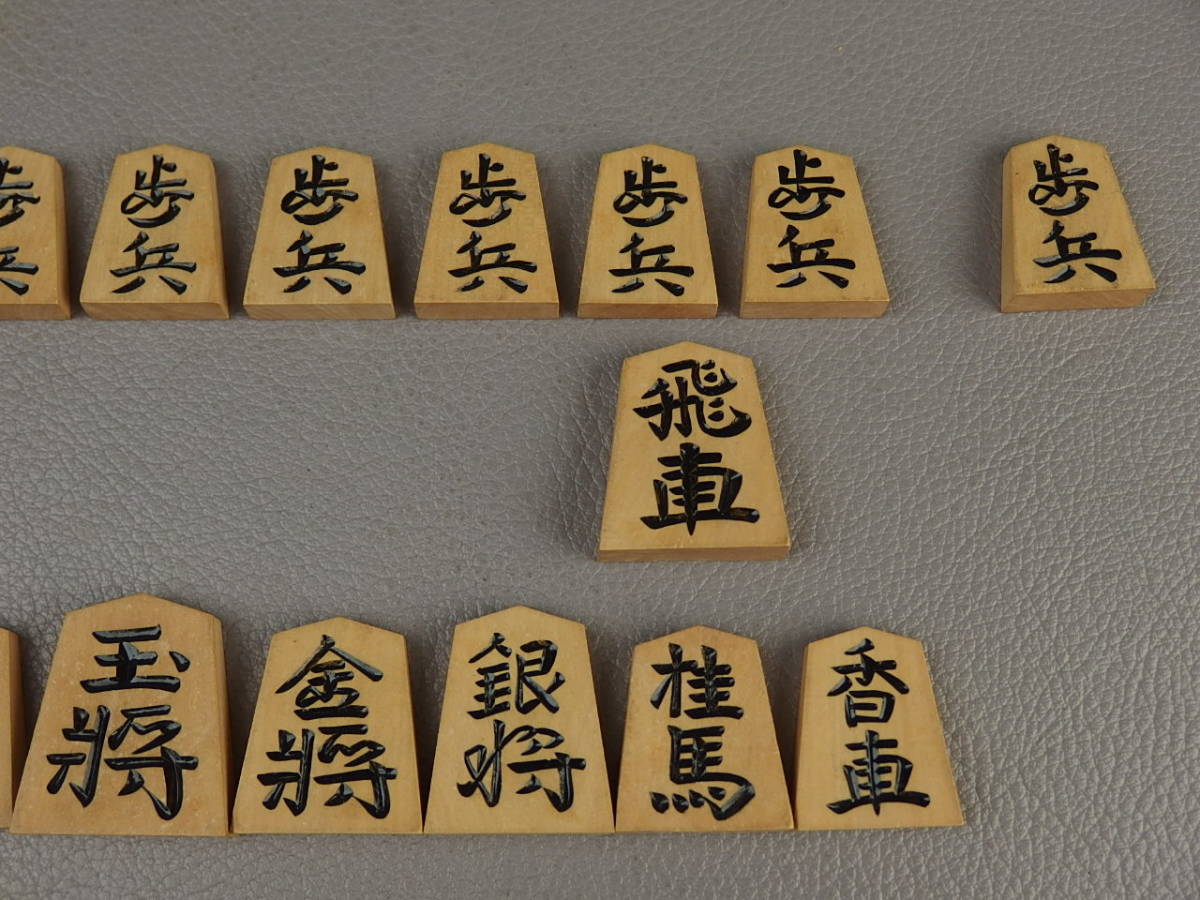 歩兵 歩兵 歩兵 歩兵 歩兵 歩兵 歩兵
飛車
玉將 金將 銀将 桂馬 香車